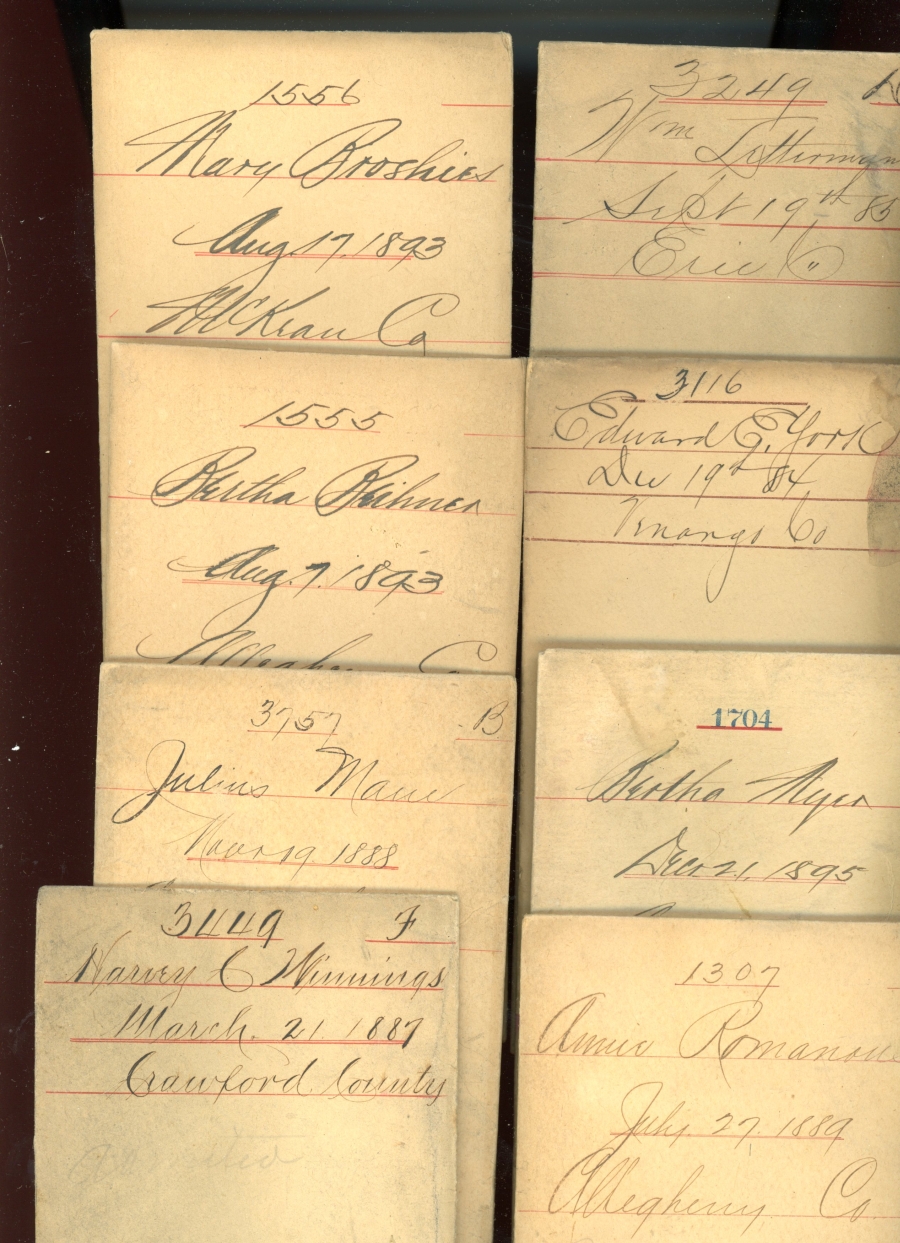 1556
Mary Broshies
Aug. 17, 1893
McKean Co
1555
Bertha Beihner
Aug. 7, 1893
Allegheny Co
3757 B
Julius Maue
Novr 19 1888
3449 F
Harvey C Winnings
March. 21. 1887
Crawford County
3249
Wm Litterman
Sept 19th 85
Erie Co
3116
Edward E. York
Dec 19th 84
Venango Co
1704
Bertha Myer
Decr 21, 1895
1307
Annie Romanou
July. 27. 1889
Allegheny Co.